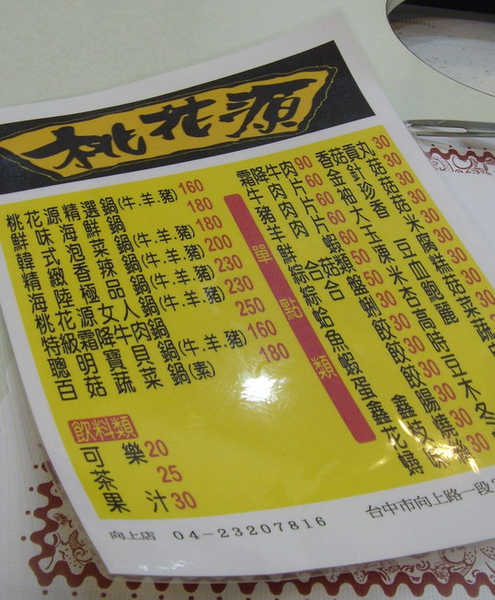 桃花源
桃花源精選鍋(牛.羊.豬)160
鮮味海鮮鍋 180
韓式泡菜鍋(牛.羊.豬)180
精緻香辣鍋(牛.羊.豬)200
海陸極品鍋(牛.羊.豬)230
桃花源女人鍋(牛.羊.豬)230
特級霜降牛肉鍋 250
聰明寶貝鍋(牛.羊.豬)160
百菇蔬菜鍋(素)180
飲料類
可樂20
茶25
果汁30
單點類
霜降牛肉90
牛肉片60
豬肉片60
羊肉片60
鮮蝦60
綜合菇類50
綜合 盤50
蛤蜊30
魚餃30
蝦餃30
蛋餃30
鑫鑫腸30
花枝燒30
鱈味
香菇貢丸30
金針菇30
袖珍菇30
大香菇30
玉米30
凍豆腐30
米血糕
杏鮑菇
高麗菜
向上店 04-23207816
台中市向上路一段